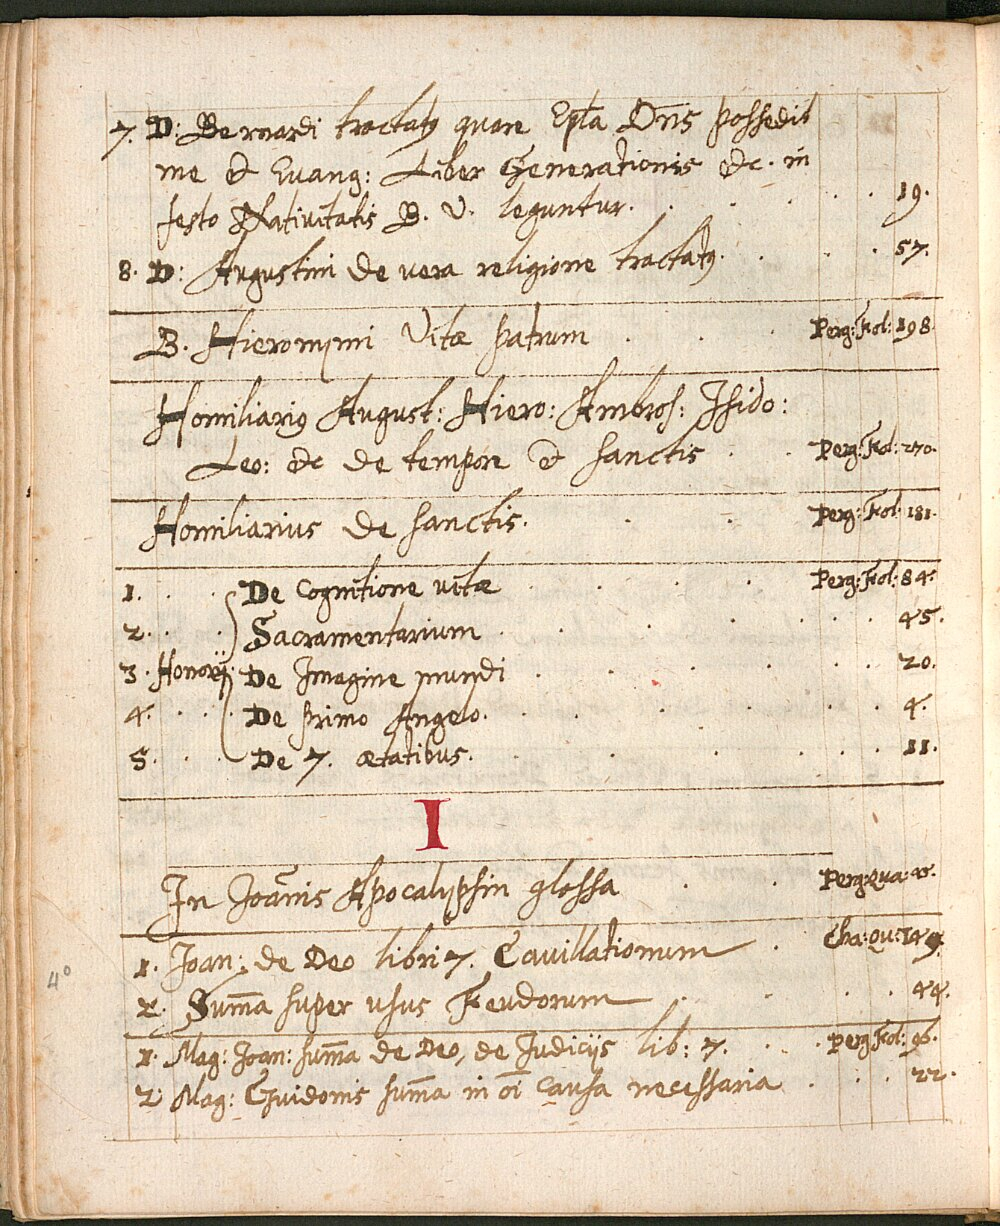 7. D: Bernardi tractatꝰ quare Epl̄a Dn̄s possedit
me & Evang: Liber Generationis &c. in
festo Nativitatis B. V. leguntur. 19.
8. D: Augustini de vera religione tractatꝰ. 57.
B. Hieronymi Vitæ Patrum Perg: Fol: 198.
Homiliariꝰ August: Hiero: Ambros: Isido:
Leo: &c de tempore & sanctis Perg: Fol: 270.
Homiliarius de sanctis. Perg: Fol: 181.
1. De Cognitione vitæ Perg: Fol: 84.
2. Sacramentarium 45.
3. Honorij. De Imagine mundi 20.
4. De primo Angelo. 4.
5. De 7. ætatibus. 11.
I
In Joānis Apocalypsin glossa Perg: Qua:
1. Joan: de Deo libri 7. Cavillationum Cha: Qu: 149.
4°
2. Sum̄a super usus Feudorum 44.
1. Mag: Joan: sum̄a de Deo, de Judicijs lib: 7. Perg: Fol: 96.
2 Mag: Guidonis sum̄a in oī causa necessaria 22.